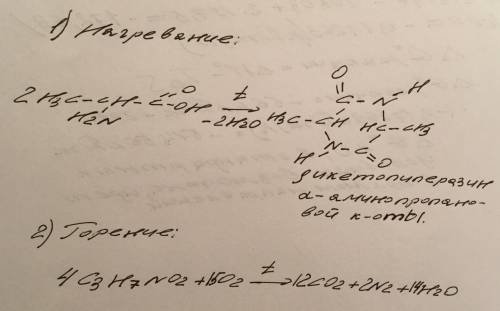 1) Нагревание:
2 H3C-CH-C=O OH t → -2H2O
H2N
O
C-N-H
H3C-CH
HC-CH3
H N-C=O
дикетопиперазин
α-аминопропано-
вой к-оты.
2) Горение:
4 C3H7NO2 + 15O2 t → 12CO2 + 2N2 + 14H2O